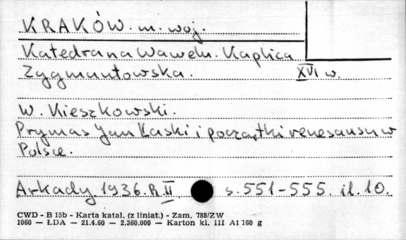 KRAKÓW. m. woj.
Katedra na Wawelu. Kaplica
Zygmuntowska. XVI w.
W. Kieszkowski.
Prymas Jan Łaski i początki renesansu w
Polsce.
Arkady 1936. R. II s. 551-555. il. 10.
CWD - B 15b - Karta katal. (z liniat.) - Zam. 788/ZW
1060 - ŁDA - 21.4.60 - 2.360.000 - Karton kl. III A1 160 g